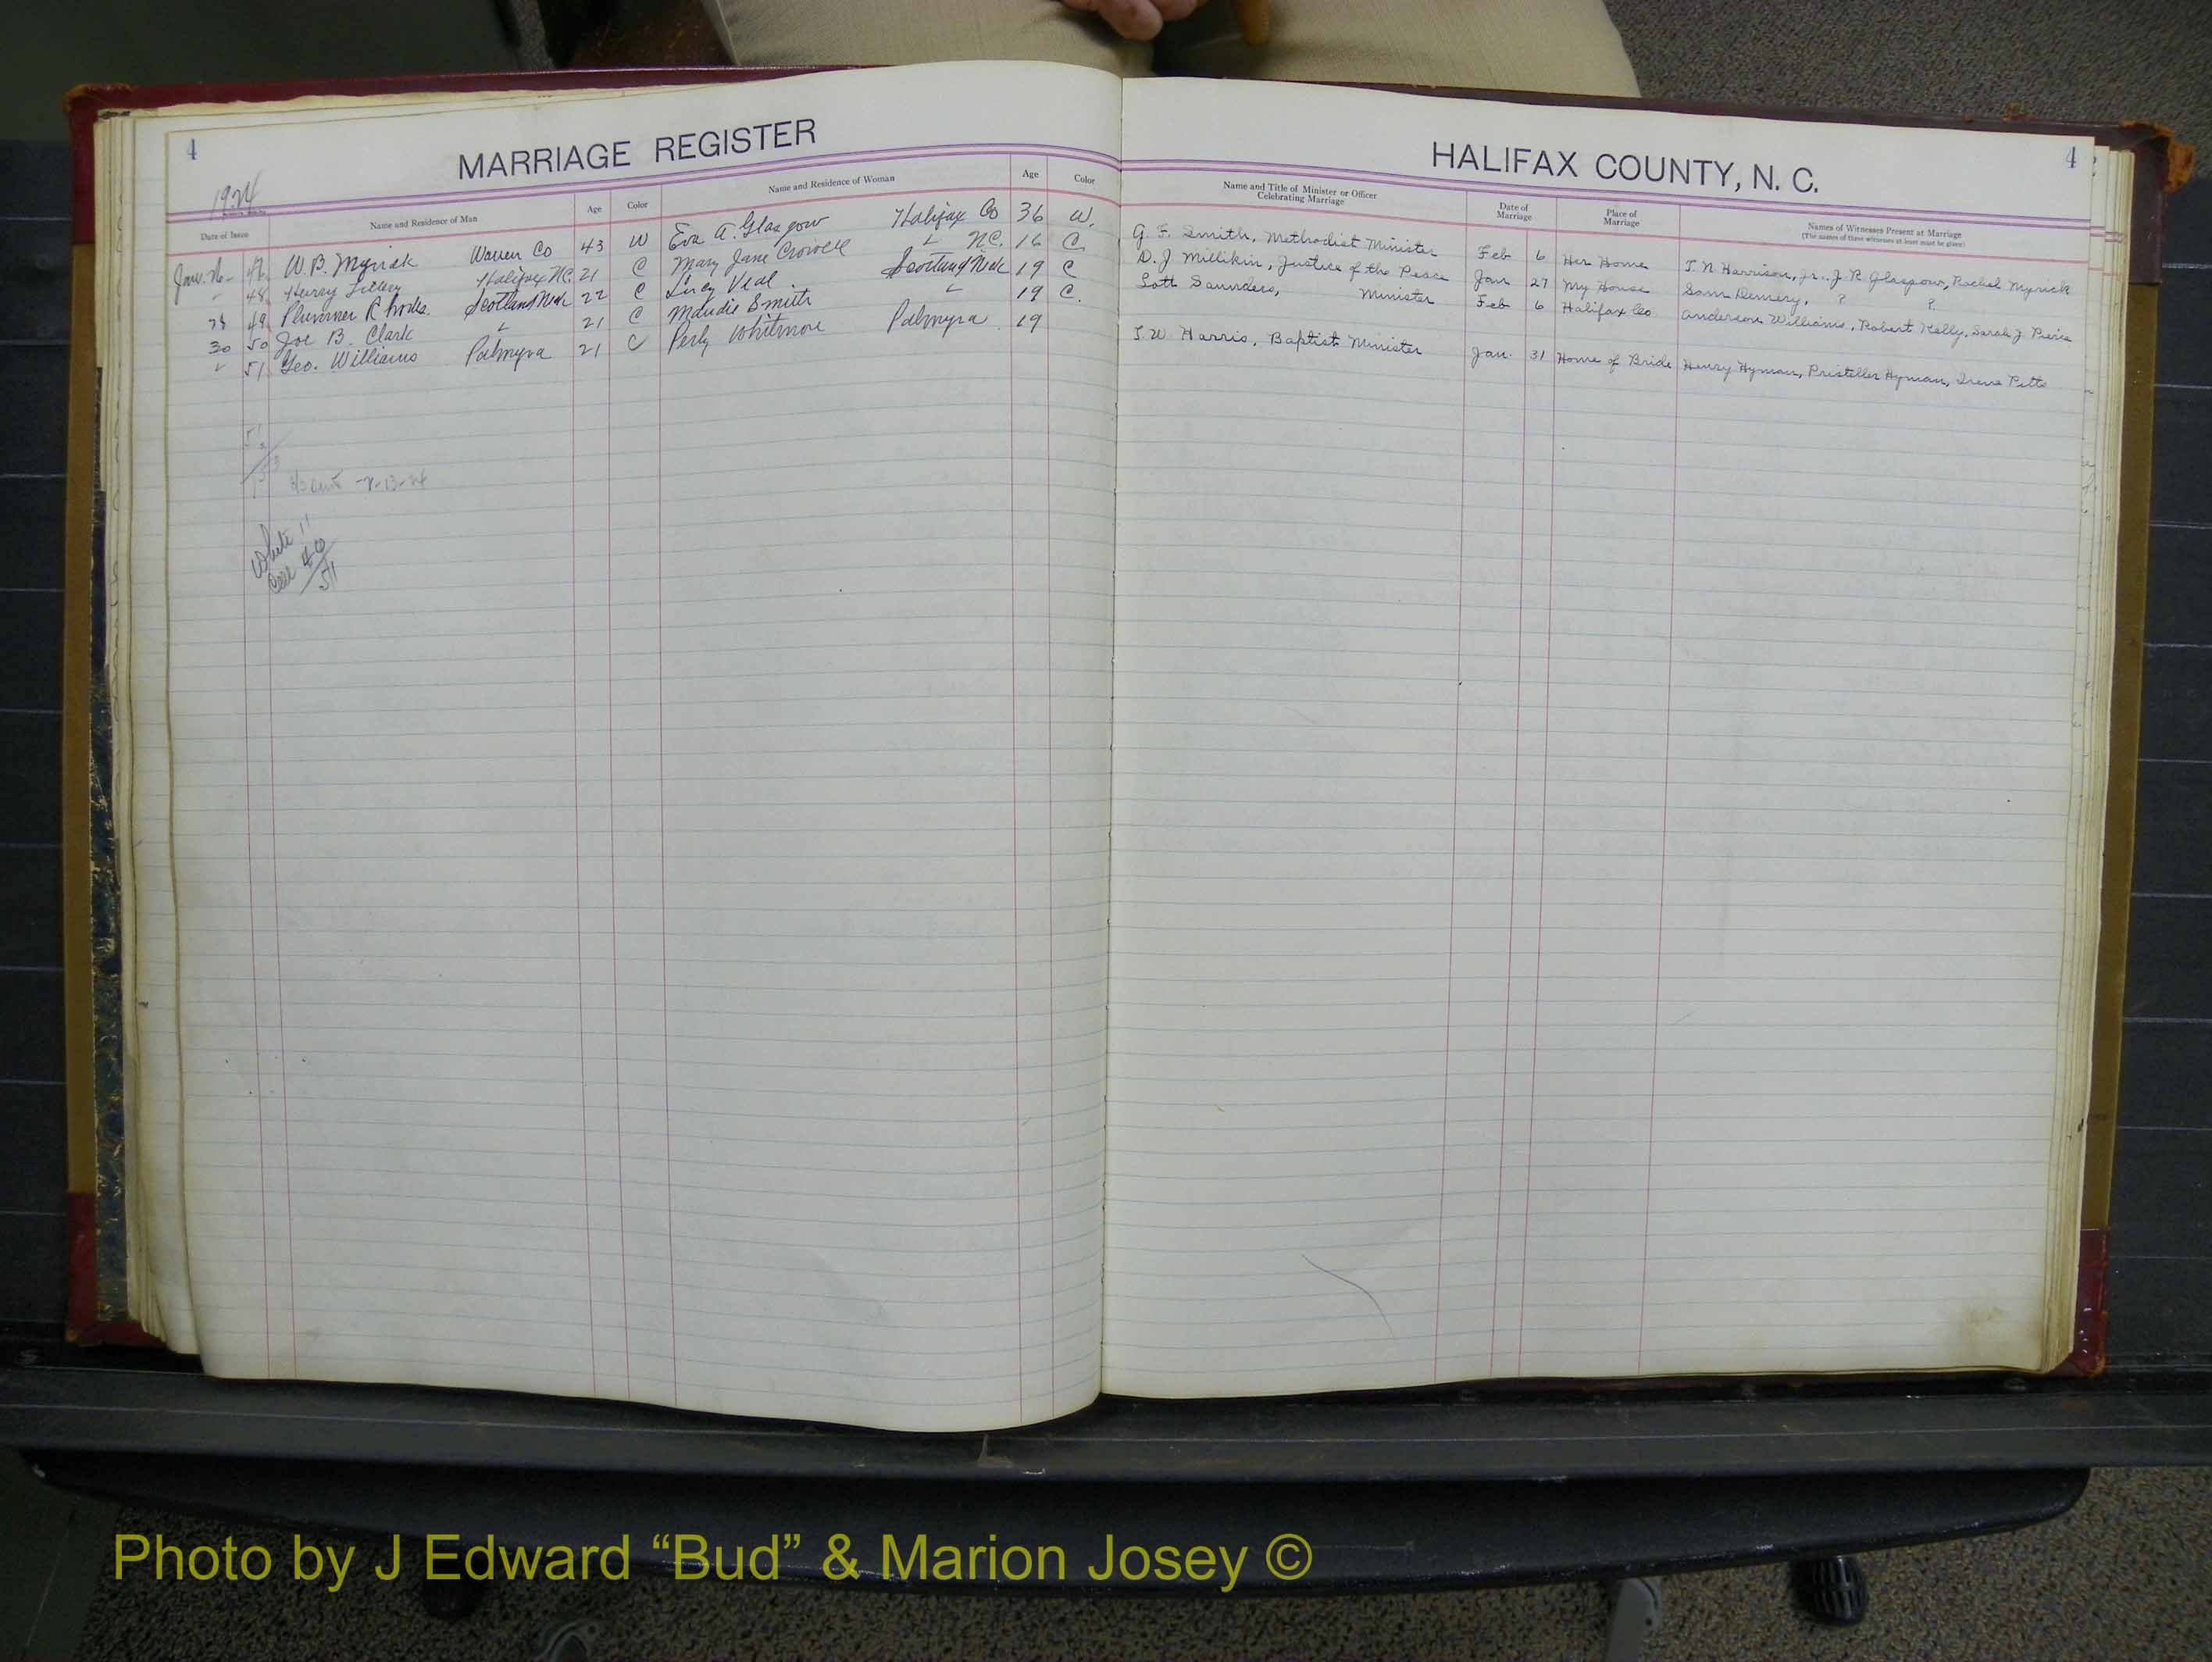 4 MARRIAGE REGISTER
1924
Date of Issue Name and Residence of Man Age Color Name and Residence of Woman Age Color
Jan. 26 - 47. W. B. Myrick Warren Co 43 W Eva A. Glasgow Halifax Co 36 W.
" 48. Henry Halifax N.C. 21 C Mary Jane Crowell " N.C. 16 C.
28 49. Plummer Rhodes. Scotland Neck 22 C Lucy Veal Scotland Neck 19 C
30 50 Joe B. Clark " 21 C Maudie Smith " 19 C.
" 51 Geo. Williams Palmyra 21 C Perly Whitmore Palmyra 19
51
-13-24
White 11
Col 40
51
HALIFAX COUNTY, N. C. 4
Name and Title of Minister or Officer Celebrating Marriage Date of Marriage Place of Marriage Names of Witnesses Present at Marriage
(The names of three witnesses at least must be given)
G. F. Smith, Methodist Minister Feb 6 Her Home T. N. Harrison, Jr., J. R. Glasgow, Rachel Myrick
D. J. Millikin, Justice of the Peace Jan 27 My House Sam Demery, ? ?
Lott Saunders, Minister Feb 6 Halifax Co Anderson Williams, Robert Kelly, Sarah J. Pierce
T. W. Harris, Baptist Minister Jan. 31 Home of Bride Henry Hyman, Pristeller Hyman, Irene Pitts
Photo by J Edward “Bud” & Marion Josey ©